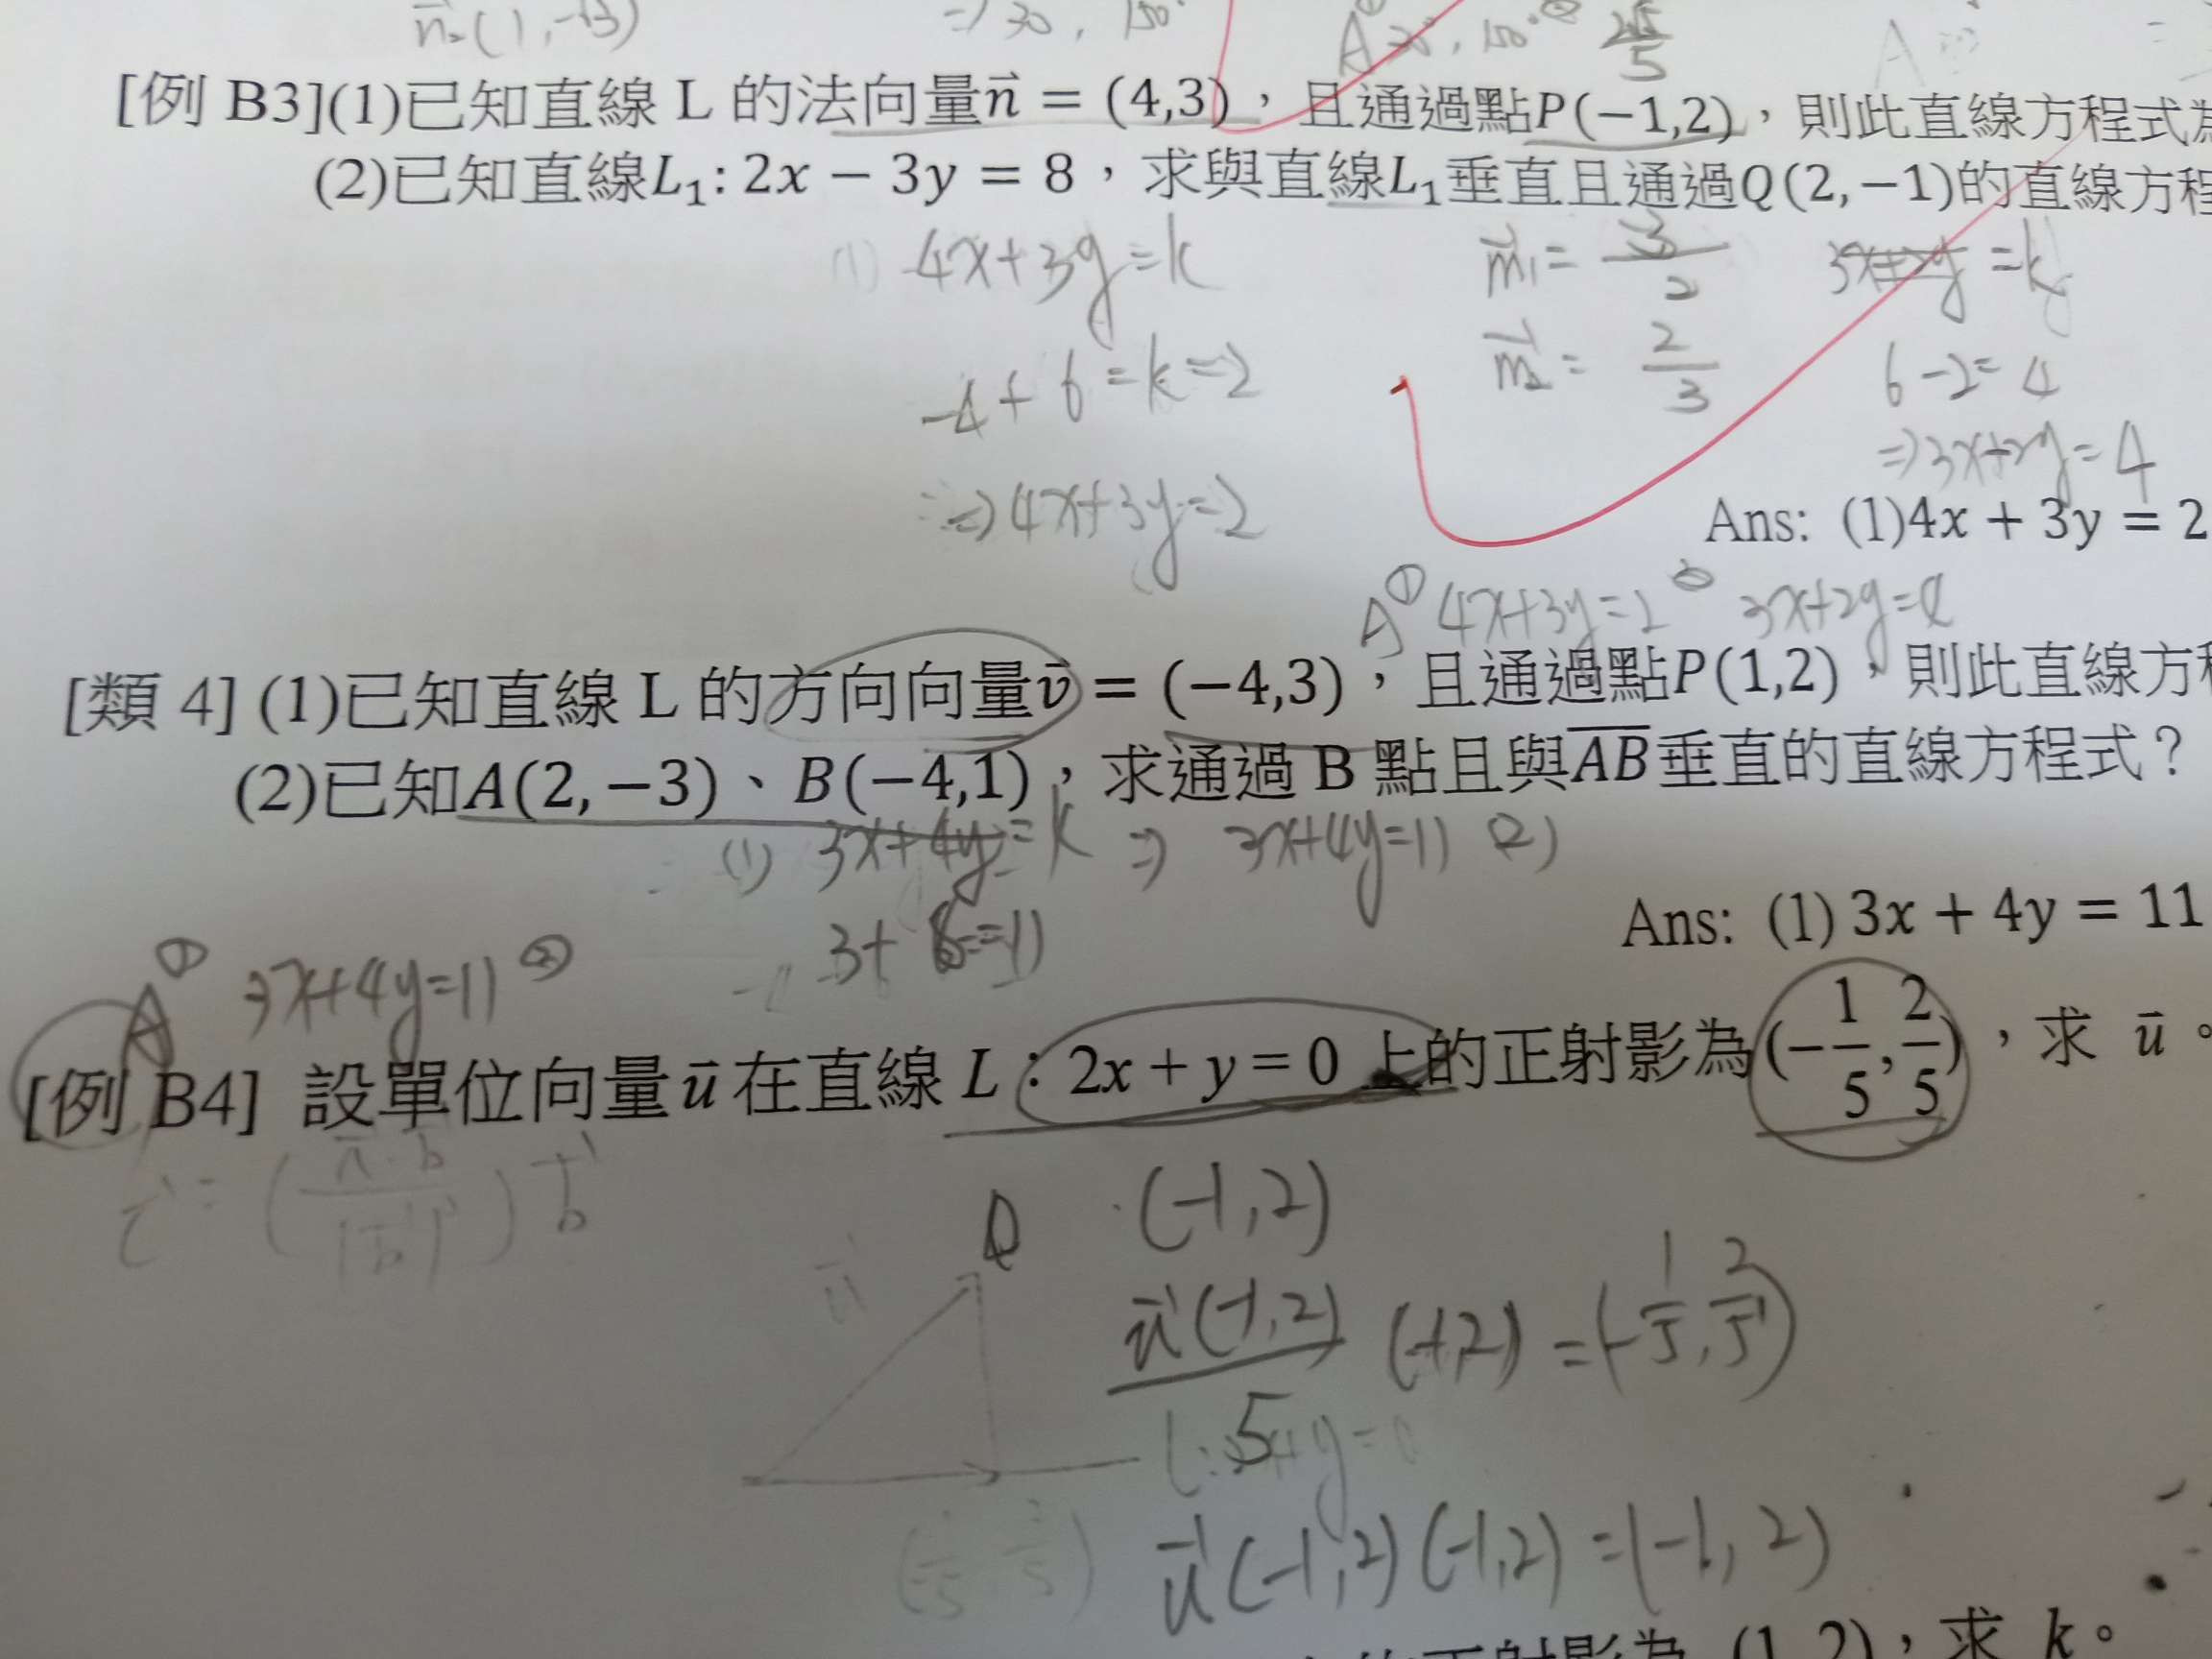 n₂(1,-√3) ⇒ 30, 150° A① 30°, 150° ② 2√5/5 A
[例 B3](1)已知直線 L 的法向量n⃗ = (4,3),且通過點P(−1,2),則此直線方程式為
(2)已知直線L₁: 2x − 3y = 8,求與直線L₁垂直且通過Q(2,−1)的直線方程
(1) 4x+3y=k m⃗₁= 3/2 3x+2y=k
-4+6=k=2 m⃗₂= 2/3 6-2=4
⇒3x+2y=4
⇒4x+3y=2
Ans: (1)4x + 3y = 2
A① 4x+3y=2 ② 3x+2y=
[類 4] (1)已知直線 L 的方向向量v⃗ = (−4,3),且通過點P(1,2),則此直線方程
(2)已知A(2,−3)、B(−4,1),求通過 B 點且與A̅B̅垂直的直線方程式?
(1) 3x+4y=k ⇒ 3x+4y=11 (2)
3+8=11
Ans: (1) 3x + 4y = 11
A① 3x+4y=11 ②
[例 B4] 設單位向量u⃗在直線 L:2x + y = 0 上的正射影為(−1/5, 2/5),求 u⃗。
(-1,2)
u⃗(-1,2)/5 (-1,2) =(-1/5, 2/5)
u⃗
u⃗(-1,2)(-1,2)=(-1,2)
的正射影為 (1,2),求 k。